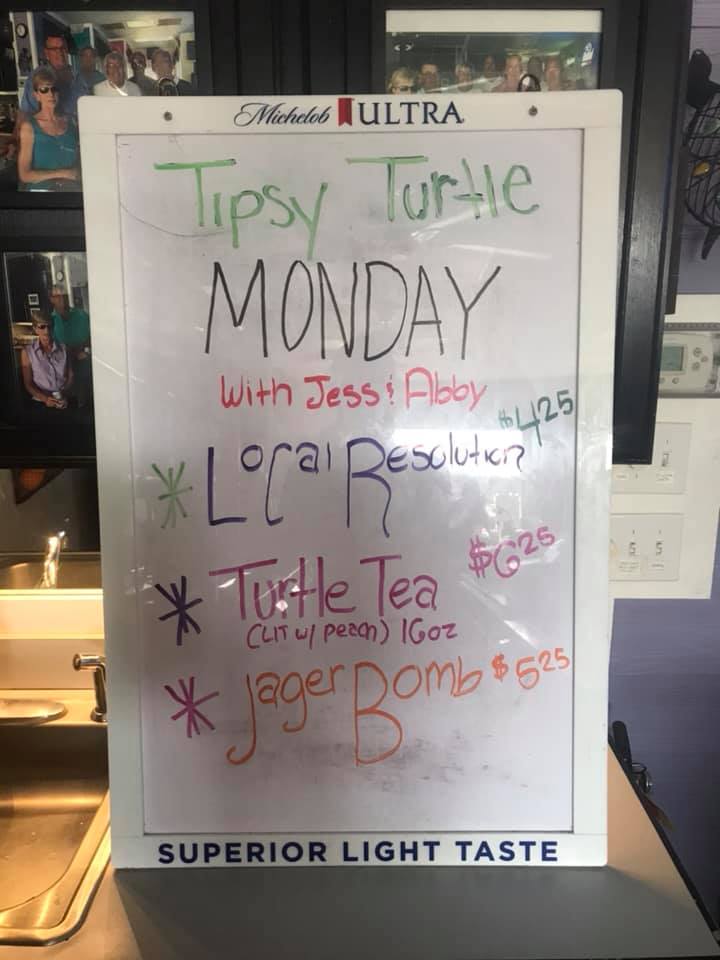 Michelob ULTRA
Tipsy Turtle
MONDAY
With Jess & Abby
$4.25
* Local Resolution
* Turtle Tea $6.25
(LIT w/ peach) 16oz
* Jager Bomb $5.25
SUPERIOR LIGHT TASTE